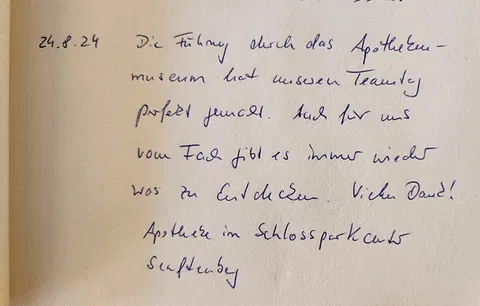 24.8.24 Die Führung durch das Apotheken-
museum hat unseren Teamtag
perfekt gemacht. Auch für uns
vom Fach gibt es immer wieder
was zu Entdecken. Vielen Dank!
Apotheke im Schlossparkcenter
Senftenberg